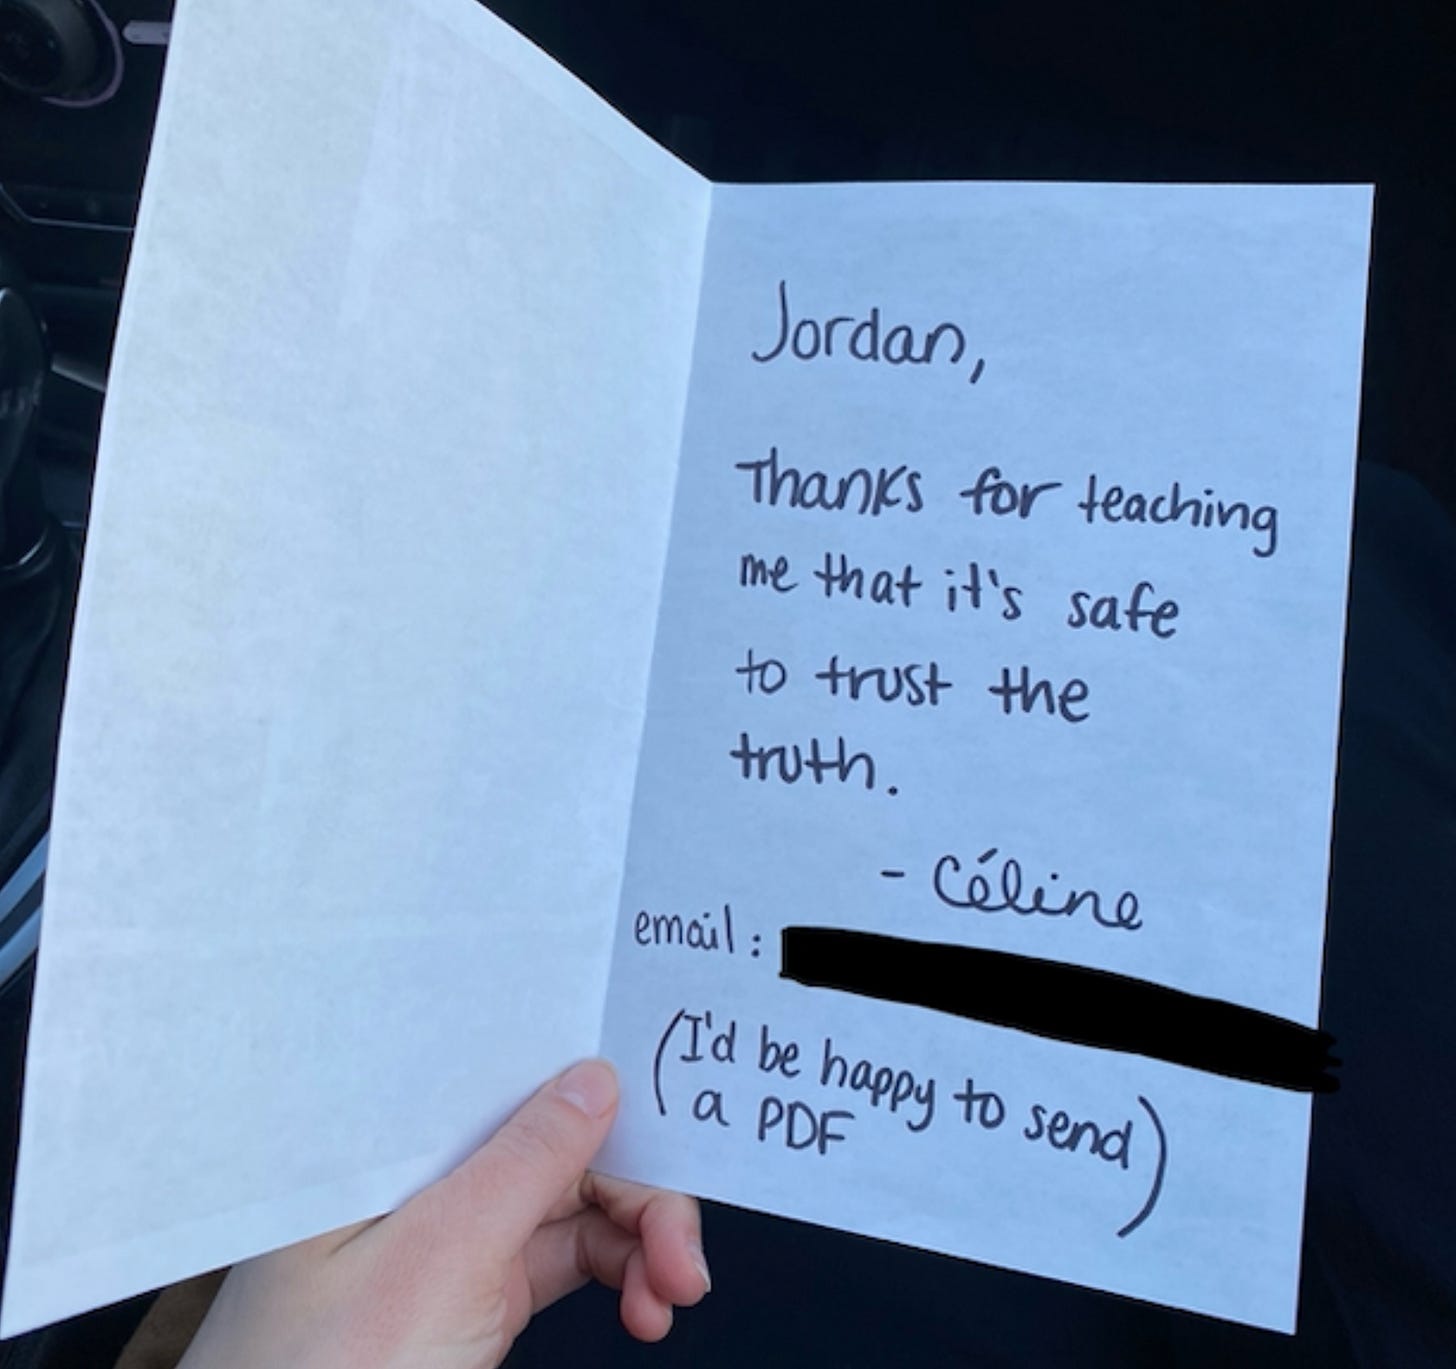 Jordan,
Thanks for teaching
me that it's safe
to trust the
truth.
- Céline
email:
(I'd be happy to send)
a PDF